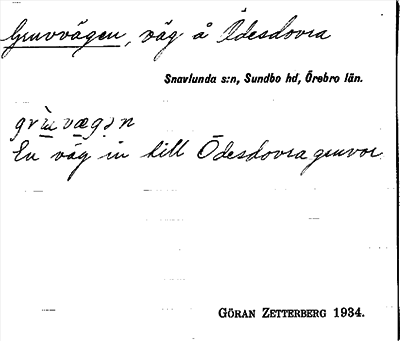 Gruvvägen, väg å Ödesdovra
Snavlunda s:n, Sundbo hd, Örebro län.
grùvægən
En väg in till Ödesdovra gruvor.
GÖRAN ZETTERBERG 1934.